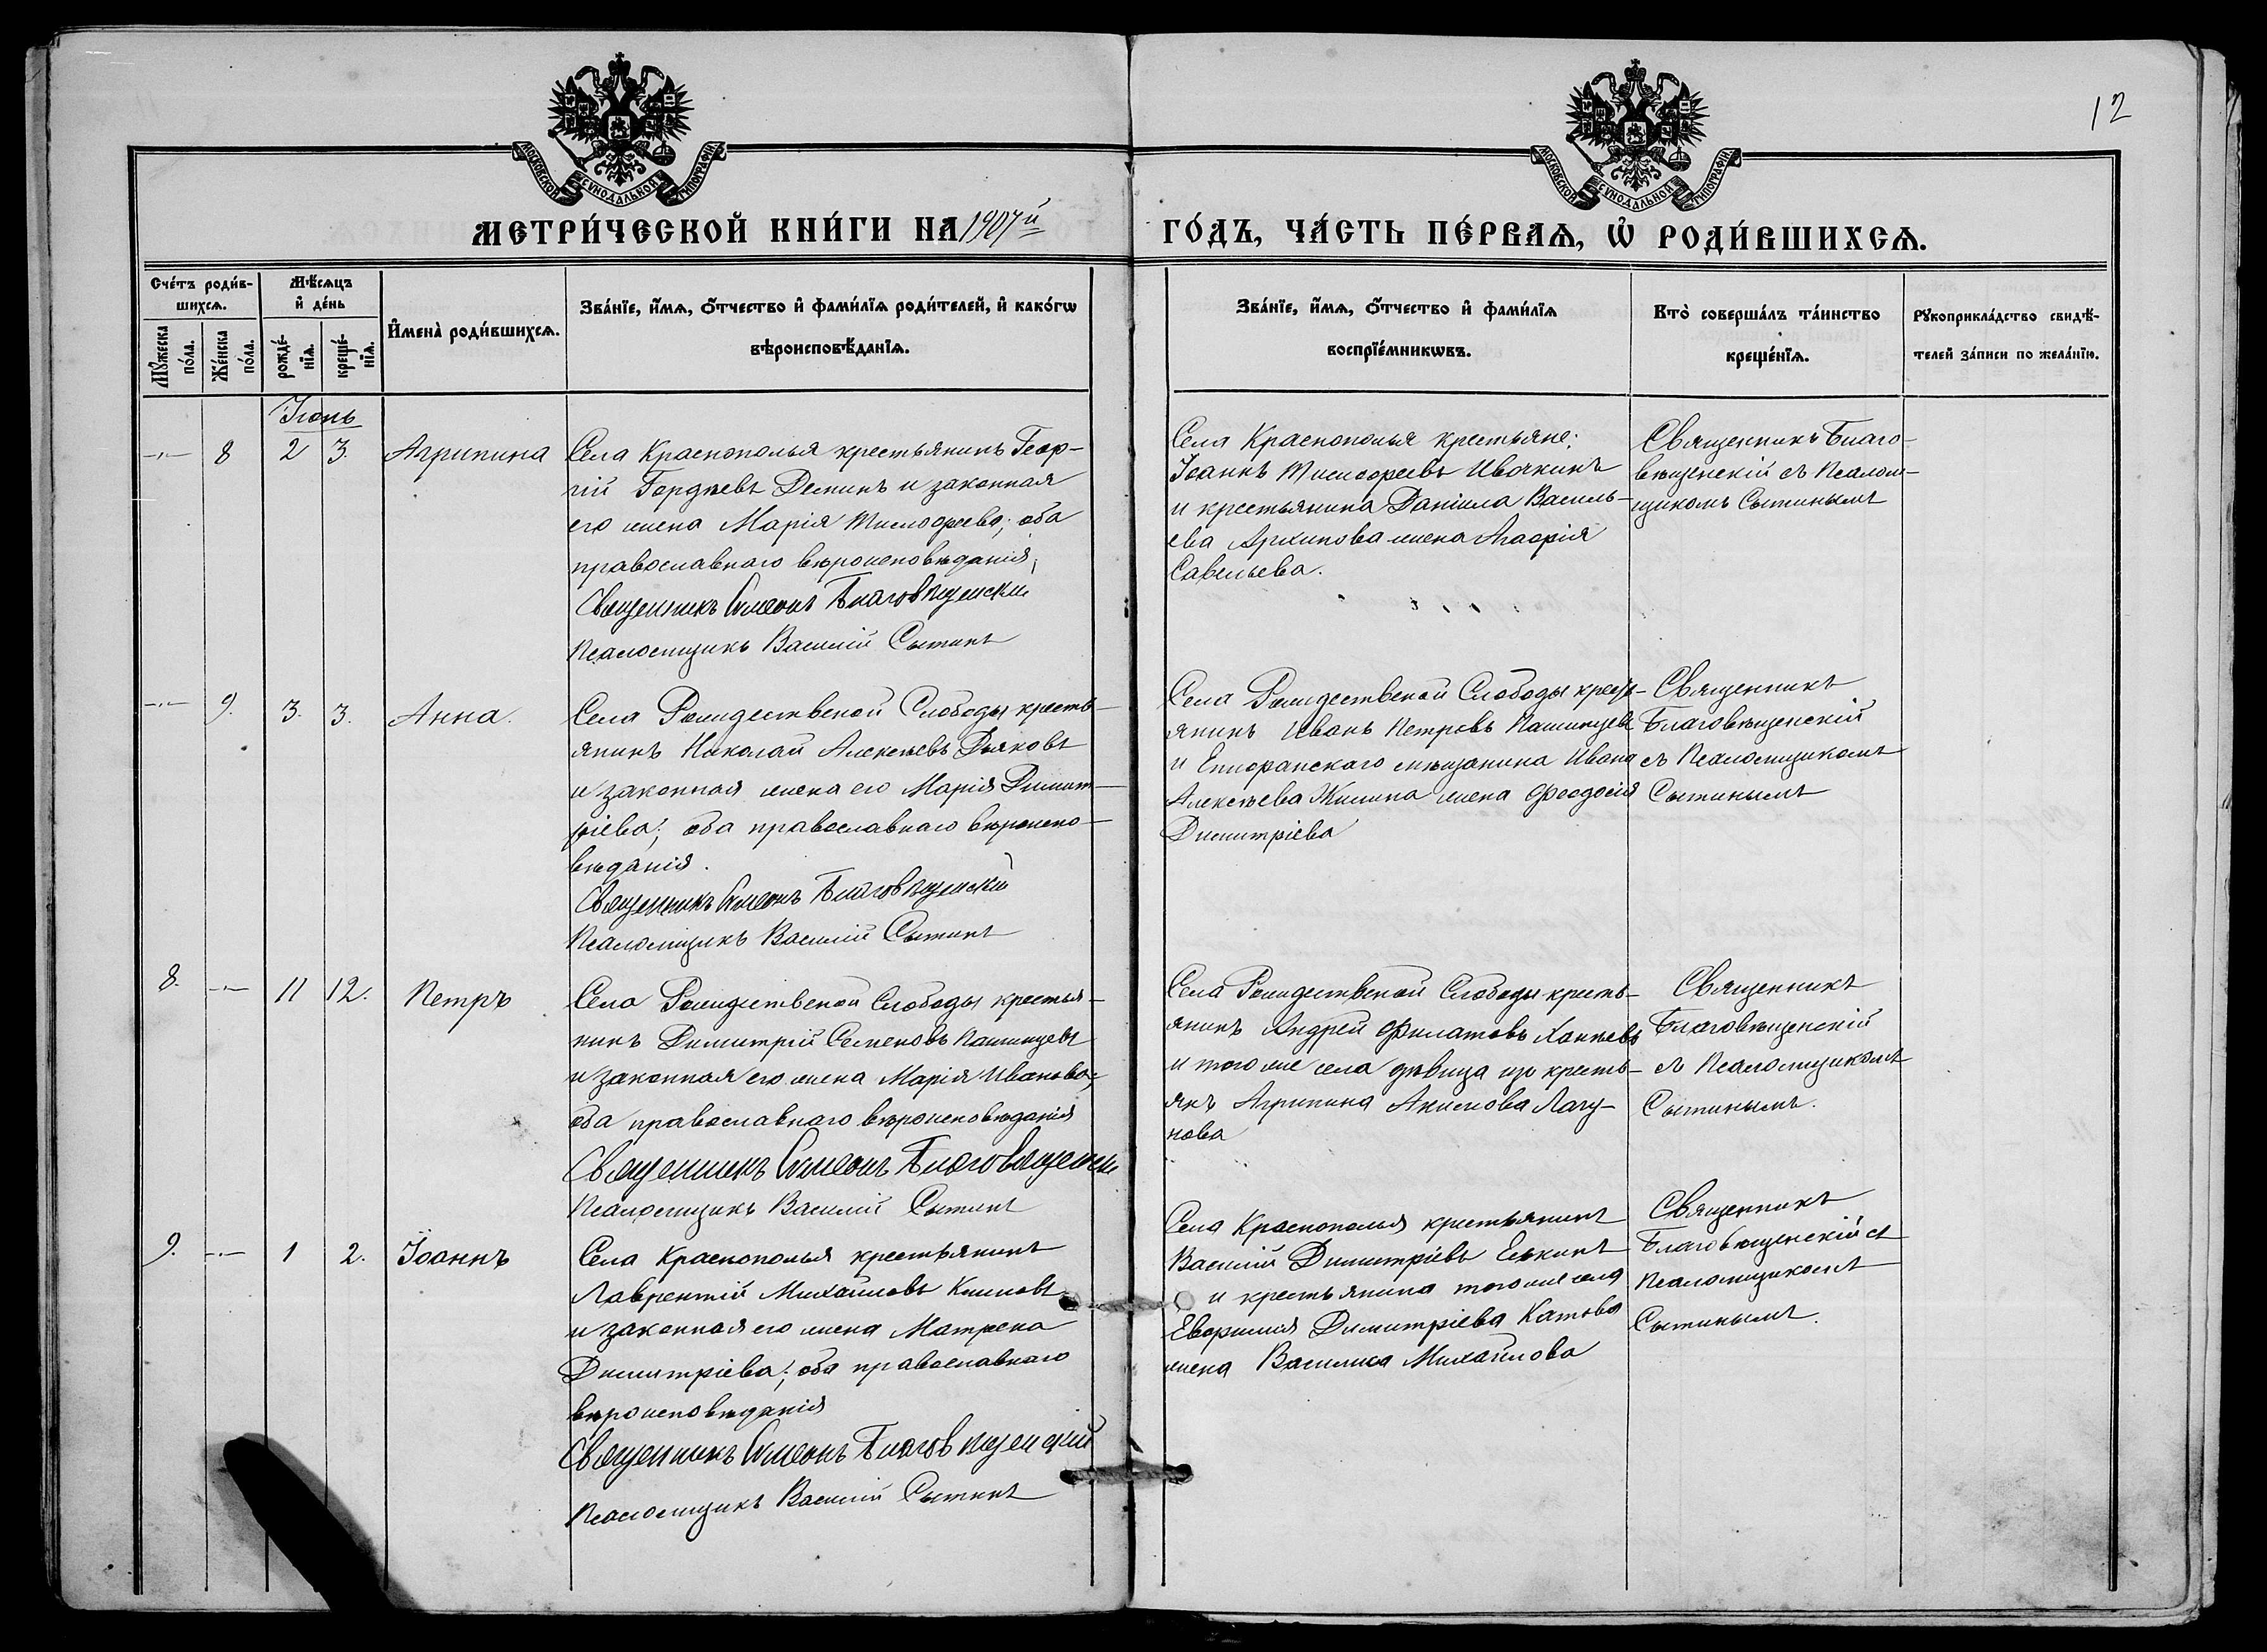 12
МОСКОВСКОЙ СѴНОДАЛЬНОЙ ТИПОГРАФІИ.
МОСКОВСКОЙ СѴНОДАЛЬНОЙ ТИПОГРАФІИ.
МЕТРИ́ЧЕСКОЙ КНИ́ГИ НА 1907й ГО́ДЪ, ЧА́СТЬ ПЕ́РВАѦ, Ѡ҆ РОДИ́ВШИХСѦ.
Сче́тъ роди́в-
шихсѧ.
Мꙋ́жеска
по́ла.
Же́нска
по́ла.
Мѣ́сѧцъ
и҆ де́нь
рожде́-
нїѧ.
креще́-
нїѧ.
И҆мена̀ роди́вшихсѧ.
Зва́нїе, и҆́мѧ, ѻ҆́тчество и҆ фами́лїѧ роди́телей, и҆ како́гѡ
вѣроисповѣ́данїѧ.
Зва́нїе, и҆́мѧ, ѻ҆́тчество и҆ фами́лїѧ
воспрїе́мникѡвъ.
Кто̀ соверша́лъ та́инство
креще́нїѧ.
Рꙋкоприкла́дство свидѣ́-
телей за́писи по жела́нїю.
Іюнь
-"- 8 2 3. Агрипина
Села Краснополья крестьянинъ Геор-
гій Гордѣевъ Деминъ и законная
его жена Марія Тимоѳеева; оба
православнаго вѣроисповѣданія;
Священникъ Симеонъ Благовѣщенскій
Псаломщикъ Василій Сытинъ
Села Краснополья крестьяне:
Іоаннъ Тимоѳеевъ Ивочкинъ
и крестьянина Даніила Василь-
ева Архипова жена Агафія
Савельева.
Священникъ Благо-
вѣщенскій съ Псалом-
щикомъ Сытинымъ
-"- 9. 3. 3. Анна.
Села Рождественой Слободы кресть-
янинъ Николай Алексѣевъ Дьяковъ
и законная жена его Марія Димит-
ріева; оба православнаго вѣроиспо-
вѣданія.
Священникъ Симеонъ Благовѣщенскій
Псаломщикъ Василій Сытинъ
Села Рождественой Слободы кресть-
янинъ Иванъ Петровъ Пашинцевъ
и Епифанскаго мѣщанина Ивана
Алексѣева Жилина жена Феодосія
Димитріева
Священникъ
Благовѣщенскій
съ Псаломщикомъ
Сытинымъ
8. -"- 11 12. Петръ
Села Рождественой Слободы крестья-
нинъ Димитрій Семеновъ Пашинцевъ
и законная его жена Марія Иванова;
оба православнаго вѣроисповѣданія
Священникъ Симеонъ Благовѣщенскій
Псаломщикъ Василій Сытинъ
Села Рождественой Слободы кресть-
янинъ Андрей Филатовъ
и того же села дѣвица изъ кресть-
янъ Агрипина Акимова Лагу-
нова
Священникъ
Благовѣщенскій
съ Псаломщикомъ
Сытинымъ.
9. -"- 1 2. Іоаннъ
Села Краснополья крестьянинъ
Лаврентій Михайловъ Климовъ
и законная его жена Матрена
Димитріева; оба православнаго
вѣроисповѣданія
Священникъ Симеонъ Благовѣщенскій
Псаломщикъ Василій Сытинъ
Села Краснополья крестьянинъ
Василій Димитріевъ Елькинъ
и крестьянина того же села
Евфимія Димитріева Катова
жена Василиса Михайлова
Священникъ
Благовѣщенскій съ
Псаломщикомъ
Сытинымъ.